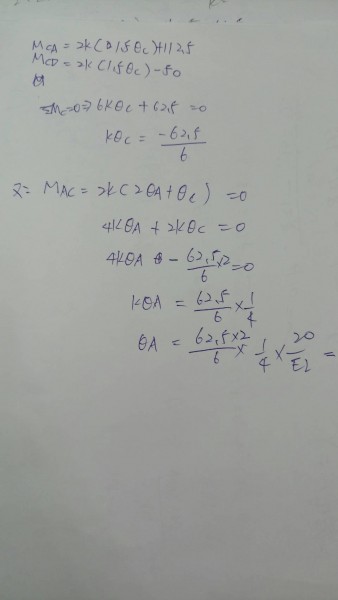 M_CA = 2K(1,5θ_C)+112,5
M_CD = 2K(1,5θ_C)-50
ΣM_C=0⇒ 6Kθ_C + 62,5 = 0
Kθ_C = -62,5/6
2= M_AC = 2K(2θ_A+θ_C) = 0
4Kθ_A + 2Kθ_C = 0
4Kθ_A - 62,5/6 ×2 = 0
Kθ_A = 62,5/6 × 1/4
θ_A = 62,5×2/6 × 1/4 × 20/EI =